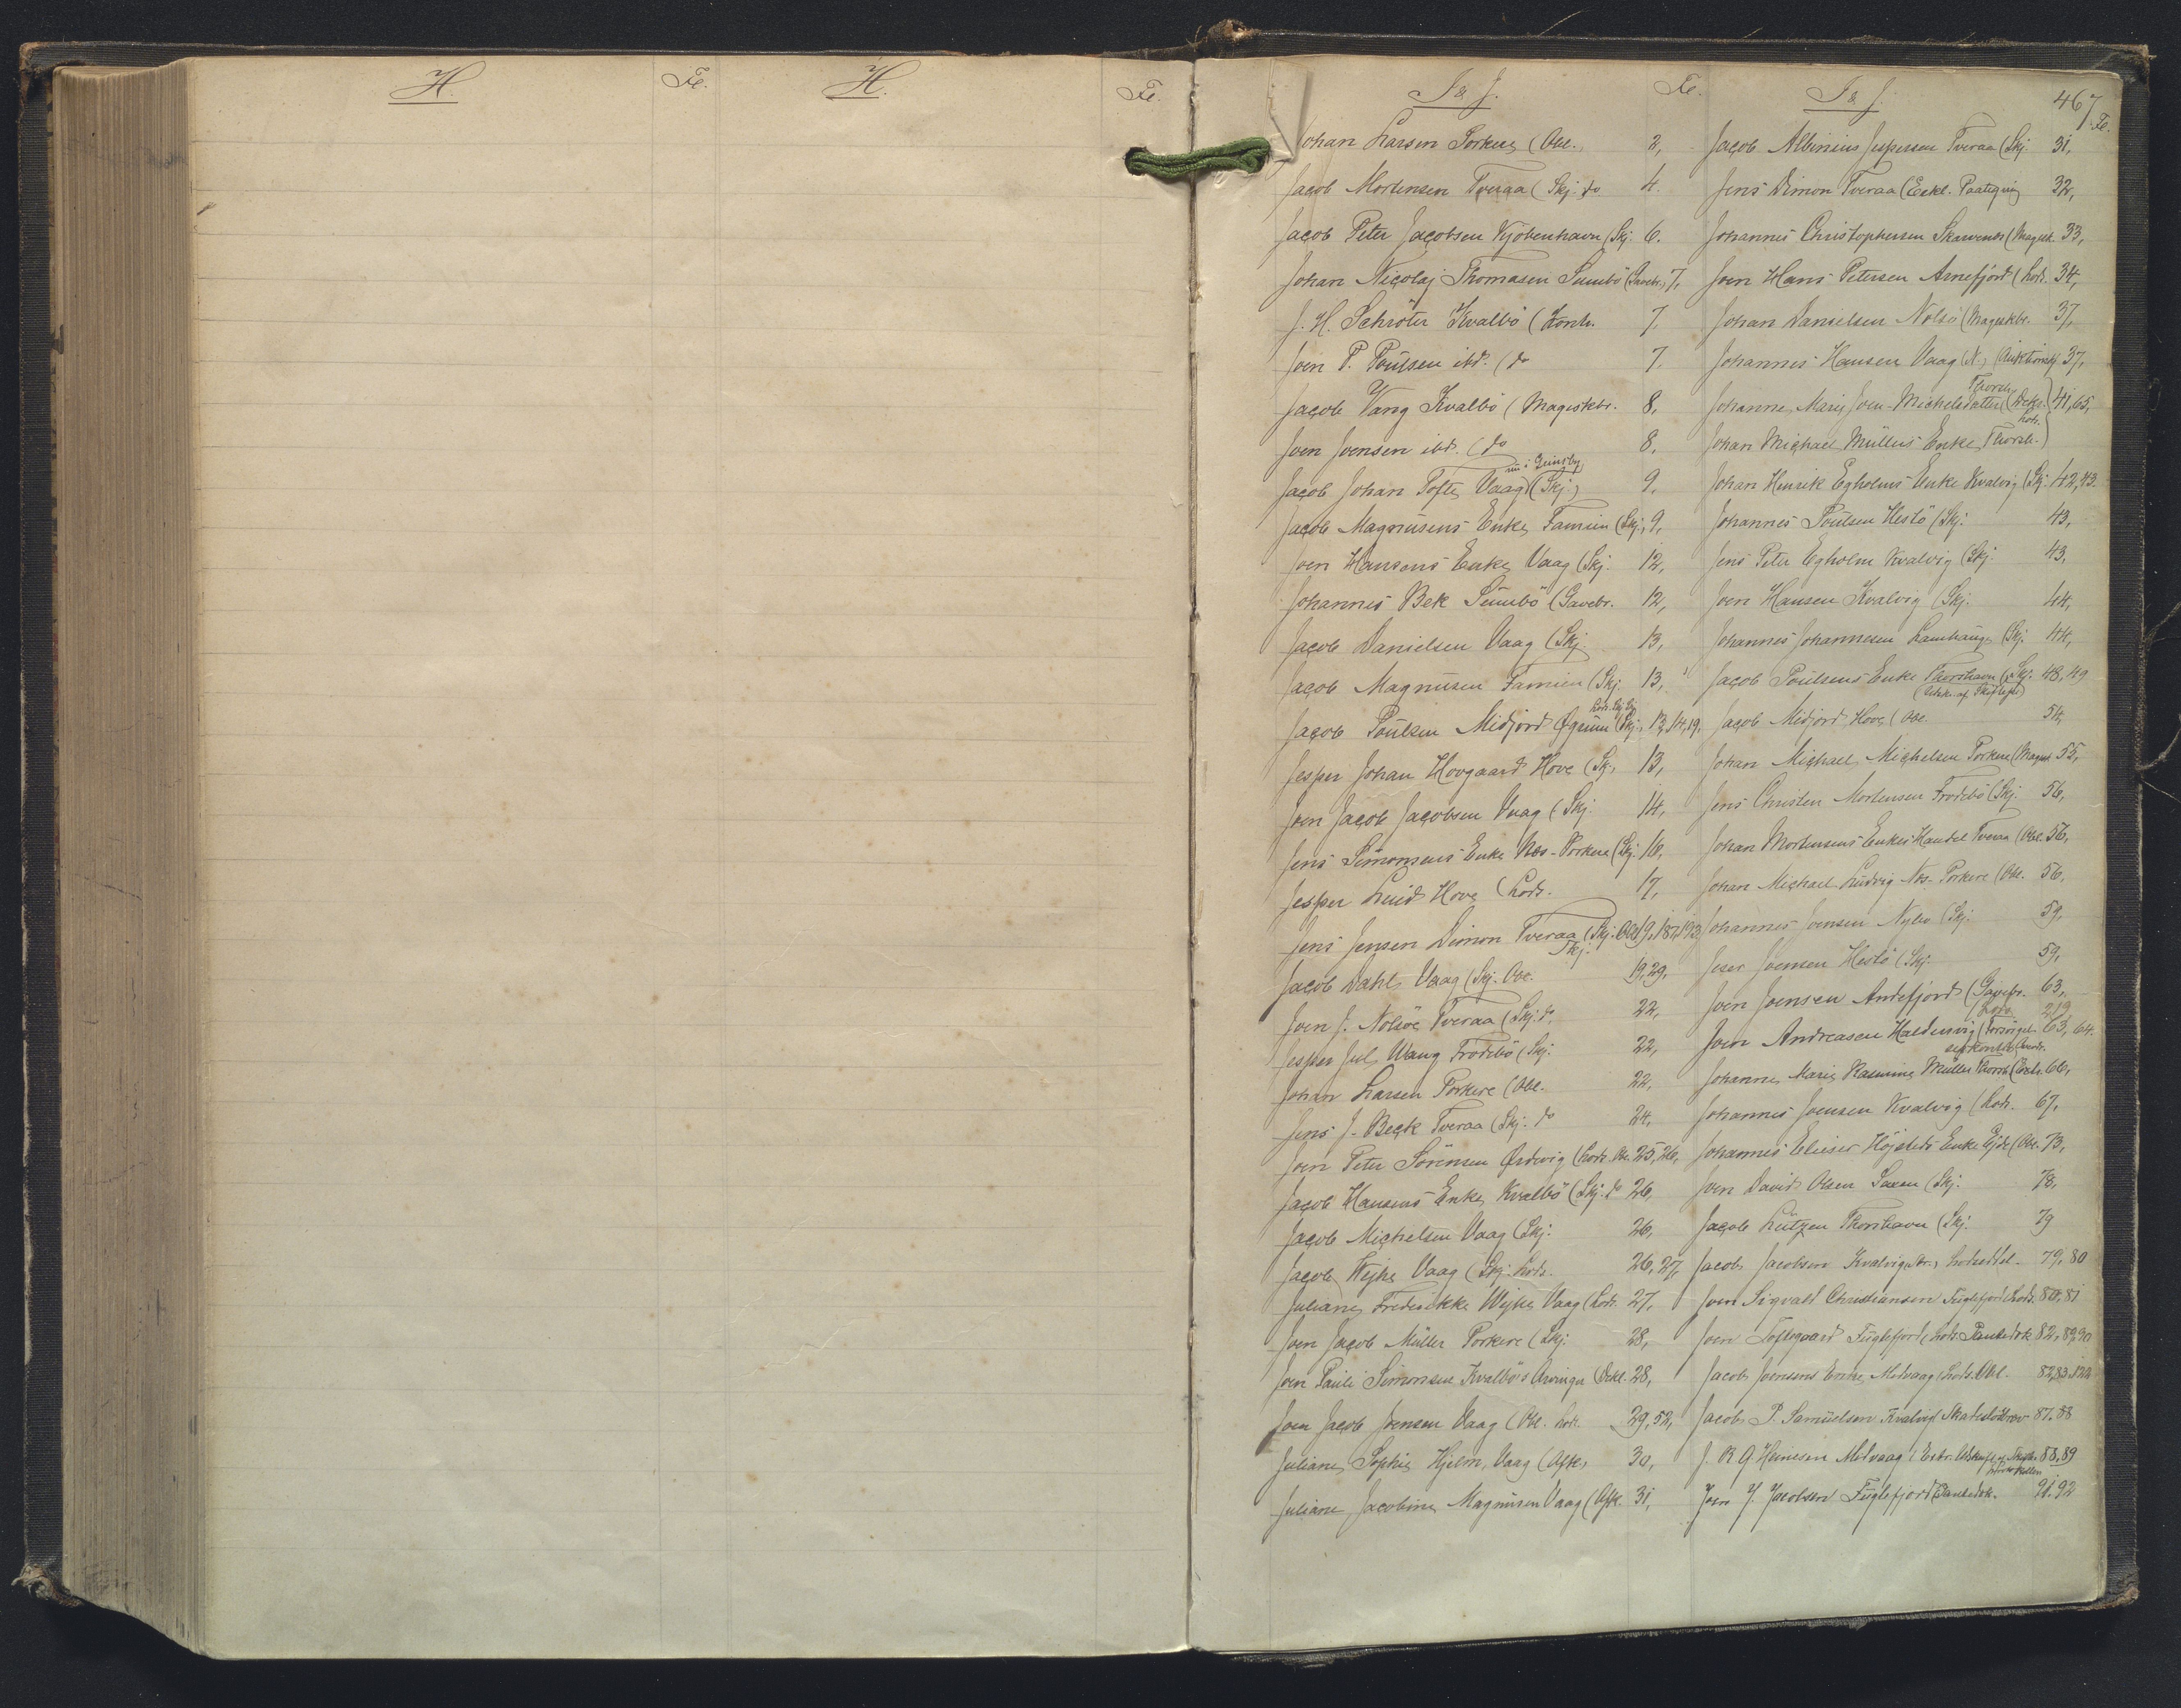 H.
Fe.
H.
Fe.
467
I & J.
Fe.
Johan Larsen Porkere (Obl. 2,
Jacob Mortensen Tveraa (Skj. do 4.
Jacob Peter Jacobsen Kjöbenhavn (Skj. 6.
Johan Nicolaj Thomasen Sumbö (Gavebr. 7,
J. H. Schröter Kvalbö (Kontr. 7.
Joen P. Poulsen ibd. (do 7.
Jacob Vang Kvalbö (Mageskbr. 8,
Joen Joensen ibd. (do 8,
nu i Grimsby
Jacob Johan Tofte Vaag (Skj. 9.
Jacob Magnusens Enke Famien (Skj. 9,
Joen Hansens Enke Vaag (Skj. 12,
Johannes Bek Sumbö (Gavebr. 12,
Jacob Danielsen Vaag (Skj. 13,
Jacob Magnusen Famien (Skj. 13,
Jacob Poulsen Midjord Øgrum (Skj. 13,14,19.
Jesper Johan Hovgaard Hove (Skj. 13,
Joen Jacob Jacobsen Vaag (Skj. 14,
Jens Simonsens Enke Nes-Porkere (Skj. 16,
Jesper Luid Hove (Lods. 17,
Jens Jensen Dimon Tveraa (Skj. Obl. 19,187,193
Skj.
Jacob Dahl Vaag (Skj. Obl. 19,29.
Joen J. Nolsöe Tveraa (Skj. do 22,
Jesper Jul. Wang Frodebö (Skj. 22,
Johan Larsen Porkere (Obl. 22,
Jens J. Beck Tveraa (Skj. do 24,
Joen Peter Sörensen Ørdevig (Lods. Obl. 25,26,
Jacob Hansens Enke Kvalbö (Skj. do 26,
Jacob Michelsen Vaag (Skj. 26,
Jacob Weihe Vaag (Skj. Lods. 26,27,
Juliane Frederikke Weihe Vaag (Lods. 27,
Joen Jacob Müller Porkere (Skj. 28,
Joen Pauli Simonsen Kvalbö's Arvinger (Dekl. 28,
Joen Jacob Joensen Vaag (Obl. Lods. 29,52,
Juliane Sophie Hjelm, Vaag (Afk. 30,
Juliane Jacobine Magnusen Vaag (Afk. 31,
I & J.
Fe.
Jacob Albinius Jespersen Tveraa (Skj. 31,
Jens Dimon Tveraa (Exkl. Paategning 32,
Johannes Christophersen Skarvenes (Magesk. 33,
Joen Hans Petersen Arnefjord (Lods. 34,
Johan Danielsen Nolsö (Mageskbr. 37,
Johannes Hansen Vaag (N.) (Auktionsskj. 37,
Thorsh.
Johanne Marie Joen-Michelsdatter (Dekr. 41,65,
Lods.
Johan Michael Müllers Enke, Thorsh.
Johan Henrik Egholms Enke Kvalvig (Skj. 42,43.
Johannes Poulsen Hestö (Skj. 43,
Jens Peter Egholm Kvalvig (Skj. 43,
Joen Hansen Kvalvig (Skj. 44,
Johannes Johannesen Lamhauge (Skj. 44,
Jacob Poulsens Enke Thorshavn (Skj. 48,49
(Udskr. af Skifteprot.)
Jacob Midjord Hove (Obl. 54,
Johan Michael Michelsen Porkere (Magesk. 55,
Jens Christen Mortensen Frodebö (Skj. 56,
Johan Mortensens Enkes Handel Tveraa (Obl. 56,
Johan Michael Ludvig Nes-Porkere (Obl. 56,
Johannes Joensen Nybo (Skj. 59,
Joensen Hestö (Skj. 59,
Joen Joensen Andefjord (Gavebr. 63,
Lods. 219
Joen Andreasen Haldersvig (Forsörgel- 63,64.
seskontr.
Johanne Marie Rasmine Müller Thorsh. 66,
Johannes Joensen Kvalvig (Lods. 67,
Johannes Elieser Højsteds Enke Ejde (Obl. 73,
Joen David Olsen Saxen (Skj. 78,
Jacob Lützen Thorshavn (Skj. 79
Jacob Jacobsen Kvalvig Str., Lodseddel. 79,80
Joen Sigvald Christiansen Fuglefjord Lods. 80,81
Joen Toftegaard Fuglefjord (Lods. Panteobl. 82,8290
Jacob Joensens Enke, Midvaag (Lods. Obl. 82,83,122
Jacob P. Samuelsen Kvalvig (Skadeslösbrev 87.88
J. R. G. Heinesen Midvaag (Extr. Udskrift af Skifte- 88,89
protokollen
Joen J. Jacobsen Fuglefjord (Panteobl. 91.92